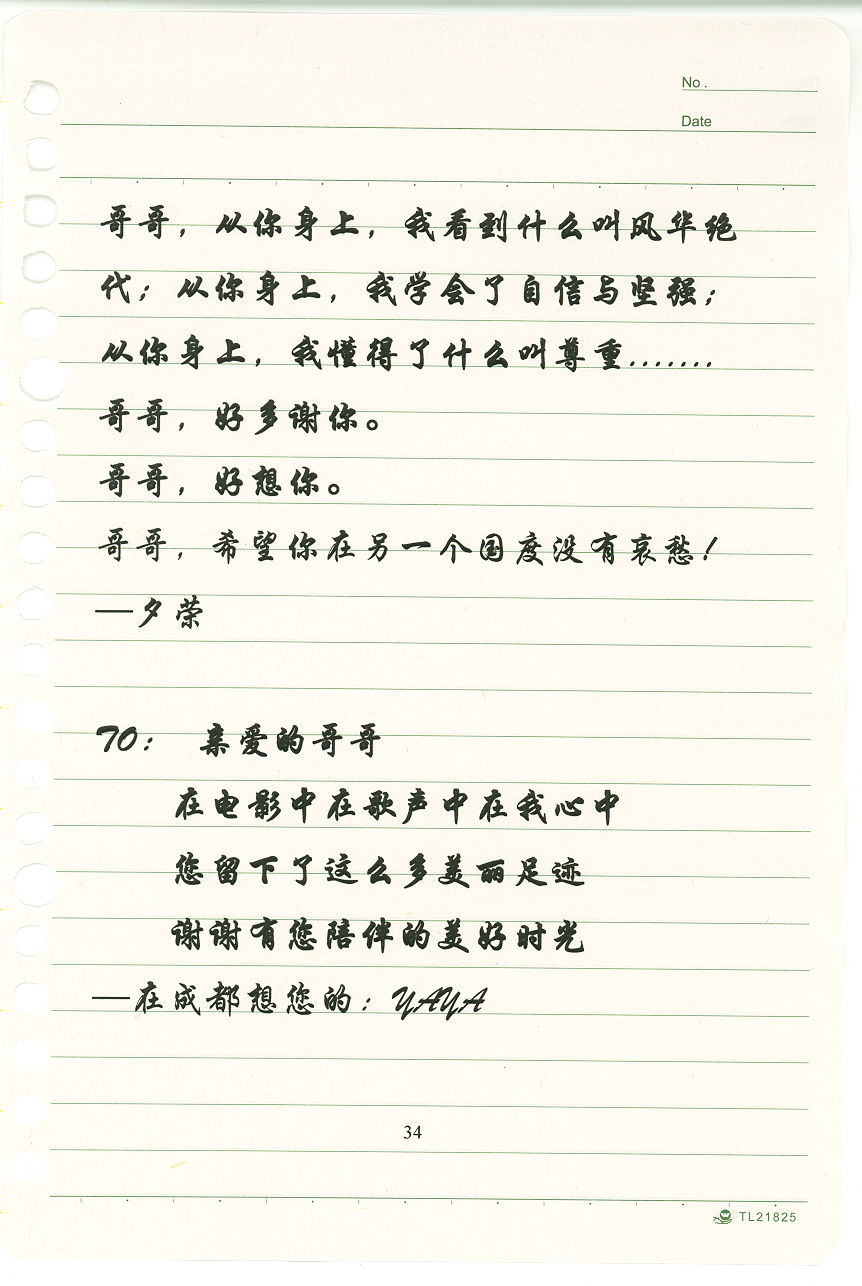 No .
Date
哥哥，从你身上，我看到什么叫风华绝
代；从你身上，我学会了自信与坚强；
从你身上，我懂得了什么叫尊重.......
哥哥，好多谢你。
哥哥，好想你。
哥哥，希望你在另一个国度没有哀愁！
—夕荣
70： 亲爱的哥哥
在电影中在歌声中在我心中
您留下了这么多美丽足迹
谢谢有您陪伴的美好时光
—在成都想您的：YAYA
34
TL21825